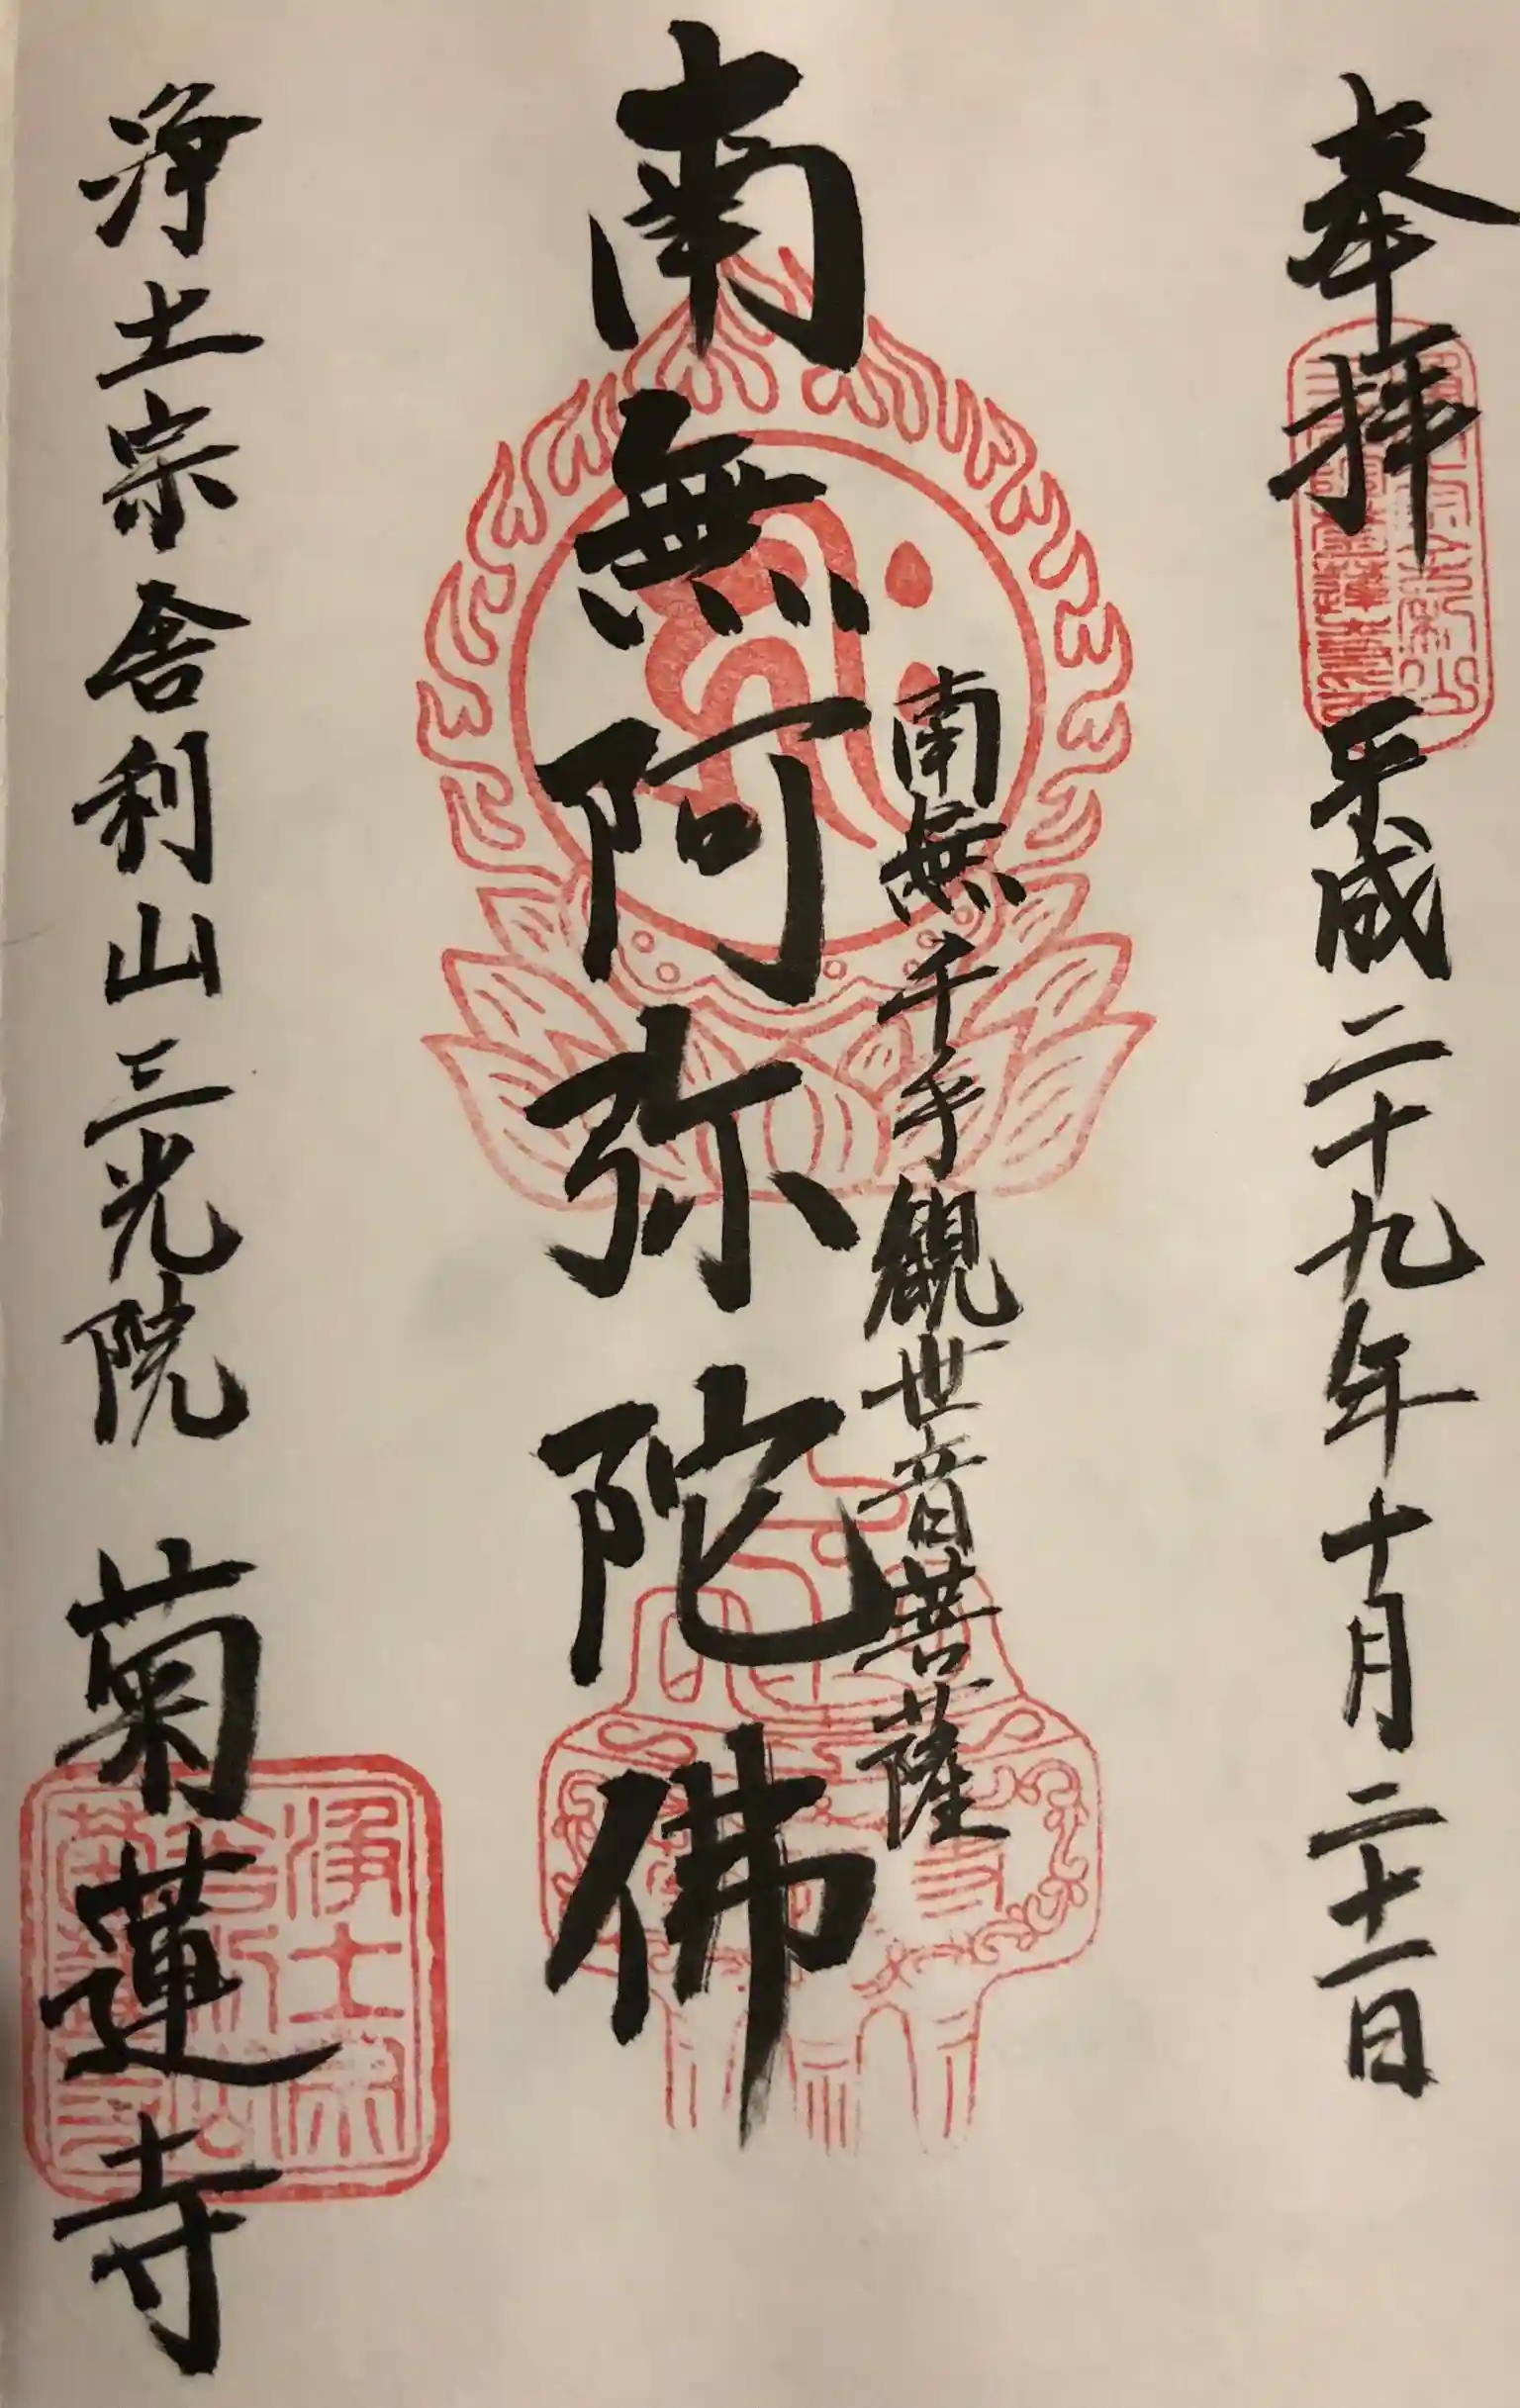 奉拝 平成二十九年十月二十一日
南無千手観世音菩薩
南無阿弥陀佛
浄土宗舎利山三光院 菊蓮寺